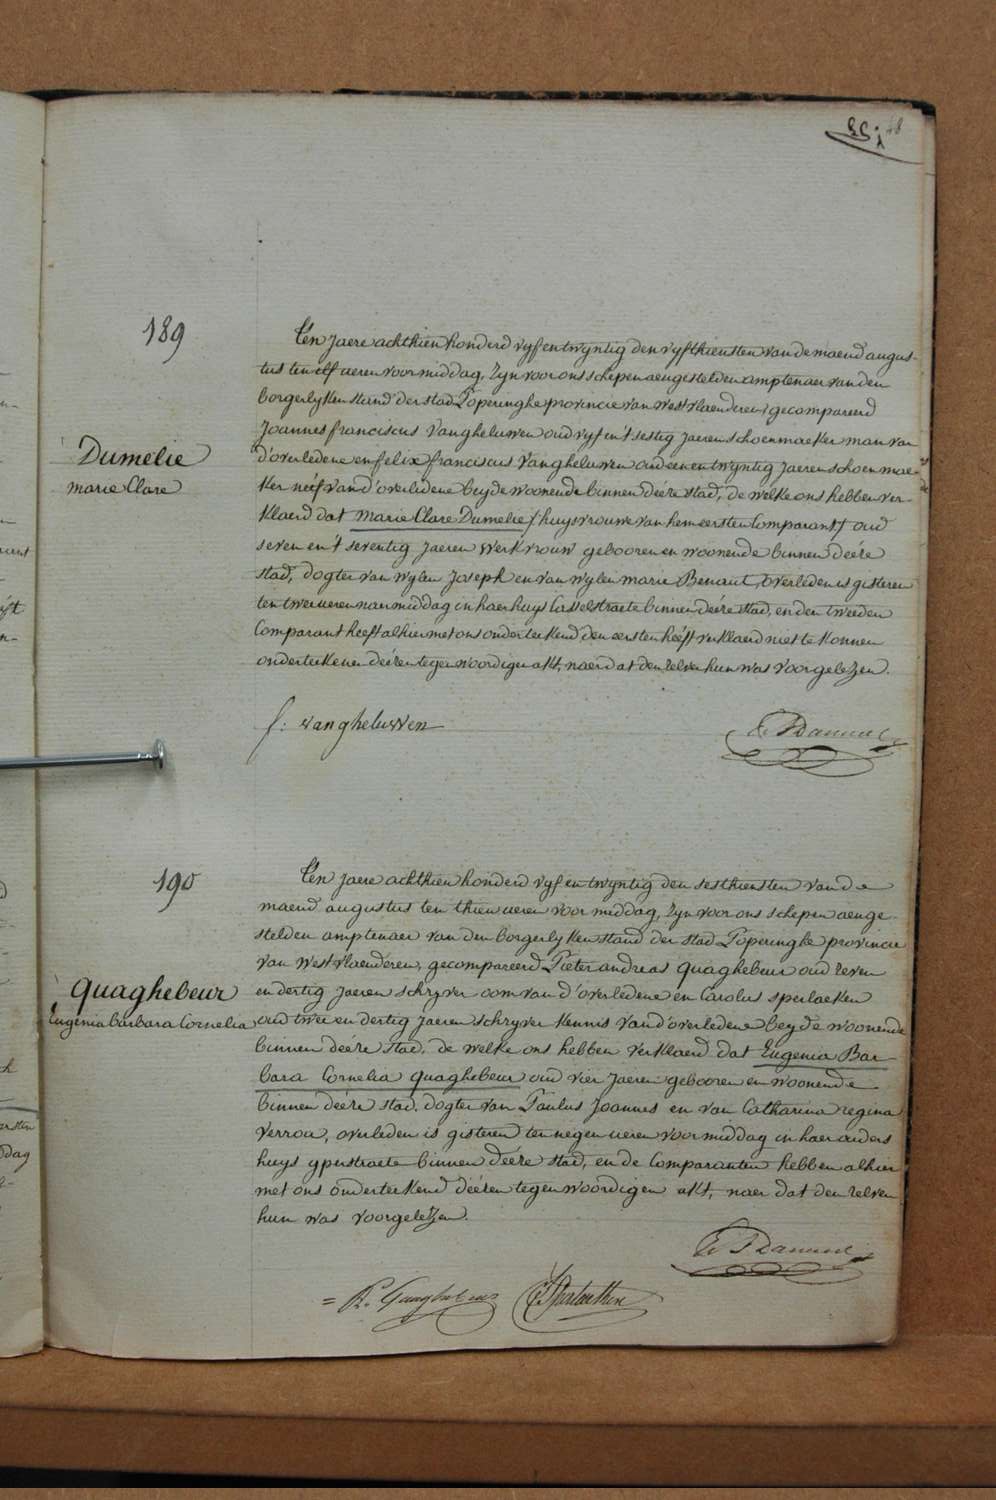 48
189
Dumelie
marie Clare
Ten Jaere achthien honderd vyf en twyntig den vyfthiensten van de maend augus-
tus ten elf ueren voormiddag, Zyn voor ons schepen aengestelden amptenaer van den
borgerlyken stand der stad Poperinghe provincie van westvlaenderen, gecompareerd
Joannes franciscus Vangheluwen oud vyf en't sestig Jaeren schoenmaeker man van
d'overledene en felix franciscus Vangheluwen oud een en twyntig Jaeren schoenmae-
ker neef van d'overledene beyde woonende binnen deére stad, de welke ons hebben ver-
klaerd dat marie Clare Dumelie /huysvrouwe van hem eersten Comparant/ oud
seven en't seventig Jaeren werkvrouw gebooren en woonende binnen deére
stad, dogter van wylen Joseph en van wylen marie Benaut, overleden is gisteren
ten twee ueren naermiddag in haer huys Casselstraete binnen deére stad, en den tweeden
Comparant heeft alhier met ons onderteekend den eersten heéft verklaerd niet te konnen
onderteekenen deéren tegenwoordigen akt, naer dat den zelven hun was voorgelezen.
f: vangheluwen
190
Quaghebeur
Eugenia barbara Cornelia
Ten Jaere achthien honderd vyf en twyntig den sesthiensten van de
maend augustus ten thien ueren voormiddag, Zyn voor ons schepen aenge-
stelden amptenaer van den borgerlyken stand der stad Poperinghe provincie
van westvlaenderen, gecompareerd Pieter andreas quaghebeur oud zeven
en dertig Jaeren schryver oom van d'overledene en Carolus sperlaeken
oud twee en dertig Jaeren schryver kennis van d'overledene beyde woonende
binnen deére stad, de welke ons hebben verklaerd dat Eugenia Bar-
bara Cornelia quaghebeur oud vier Jaeren gebooren en woonende
binnen deére stad, dogter van Paulus Joannes en van Catharina regina
verroa, overleden is gisteren ten negen ueren voormiddag in haer ouders
huys yperstraete binnen deére stad, en de Comparanten hebben alhier
met ons onderteekend deéren tegenwoordigen akt, naer dat den zelven
hun was voorgelezen.
P. Quaghebeur